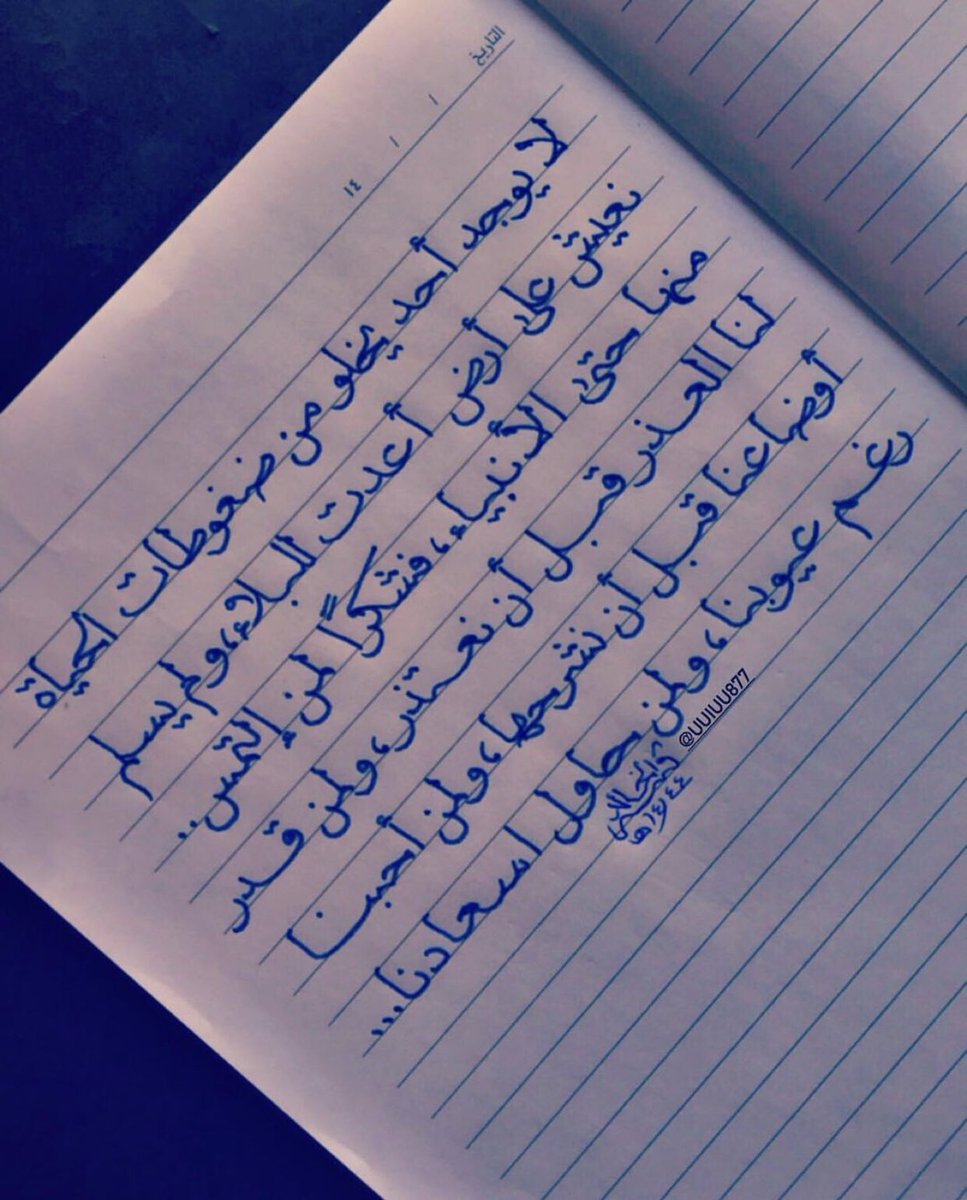 التاريخ / / ١٤
لا يوجد أحد يخلو من ضغوطات الحياة
نعيش على أرض أعدت للبلاء، ولم يسلم
منها حتى الأنبياء، فشكرًا لمن إلتمس..
لنا العذر قبل أن نعتذر، ولمن قدر
أوضاعنا قبل أن نشرحها، ولمن أحبنا
رغم عيوبنا، ولمن حاول اسعادنا...
@UUIUU877